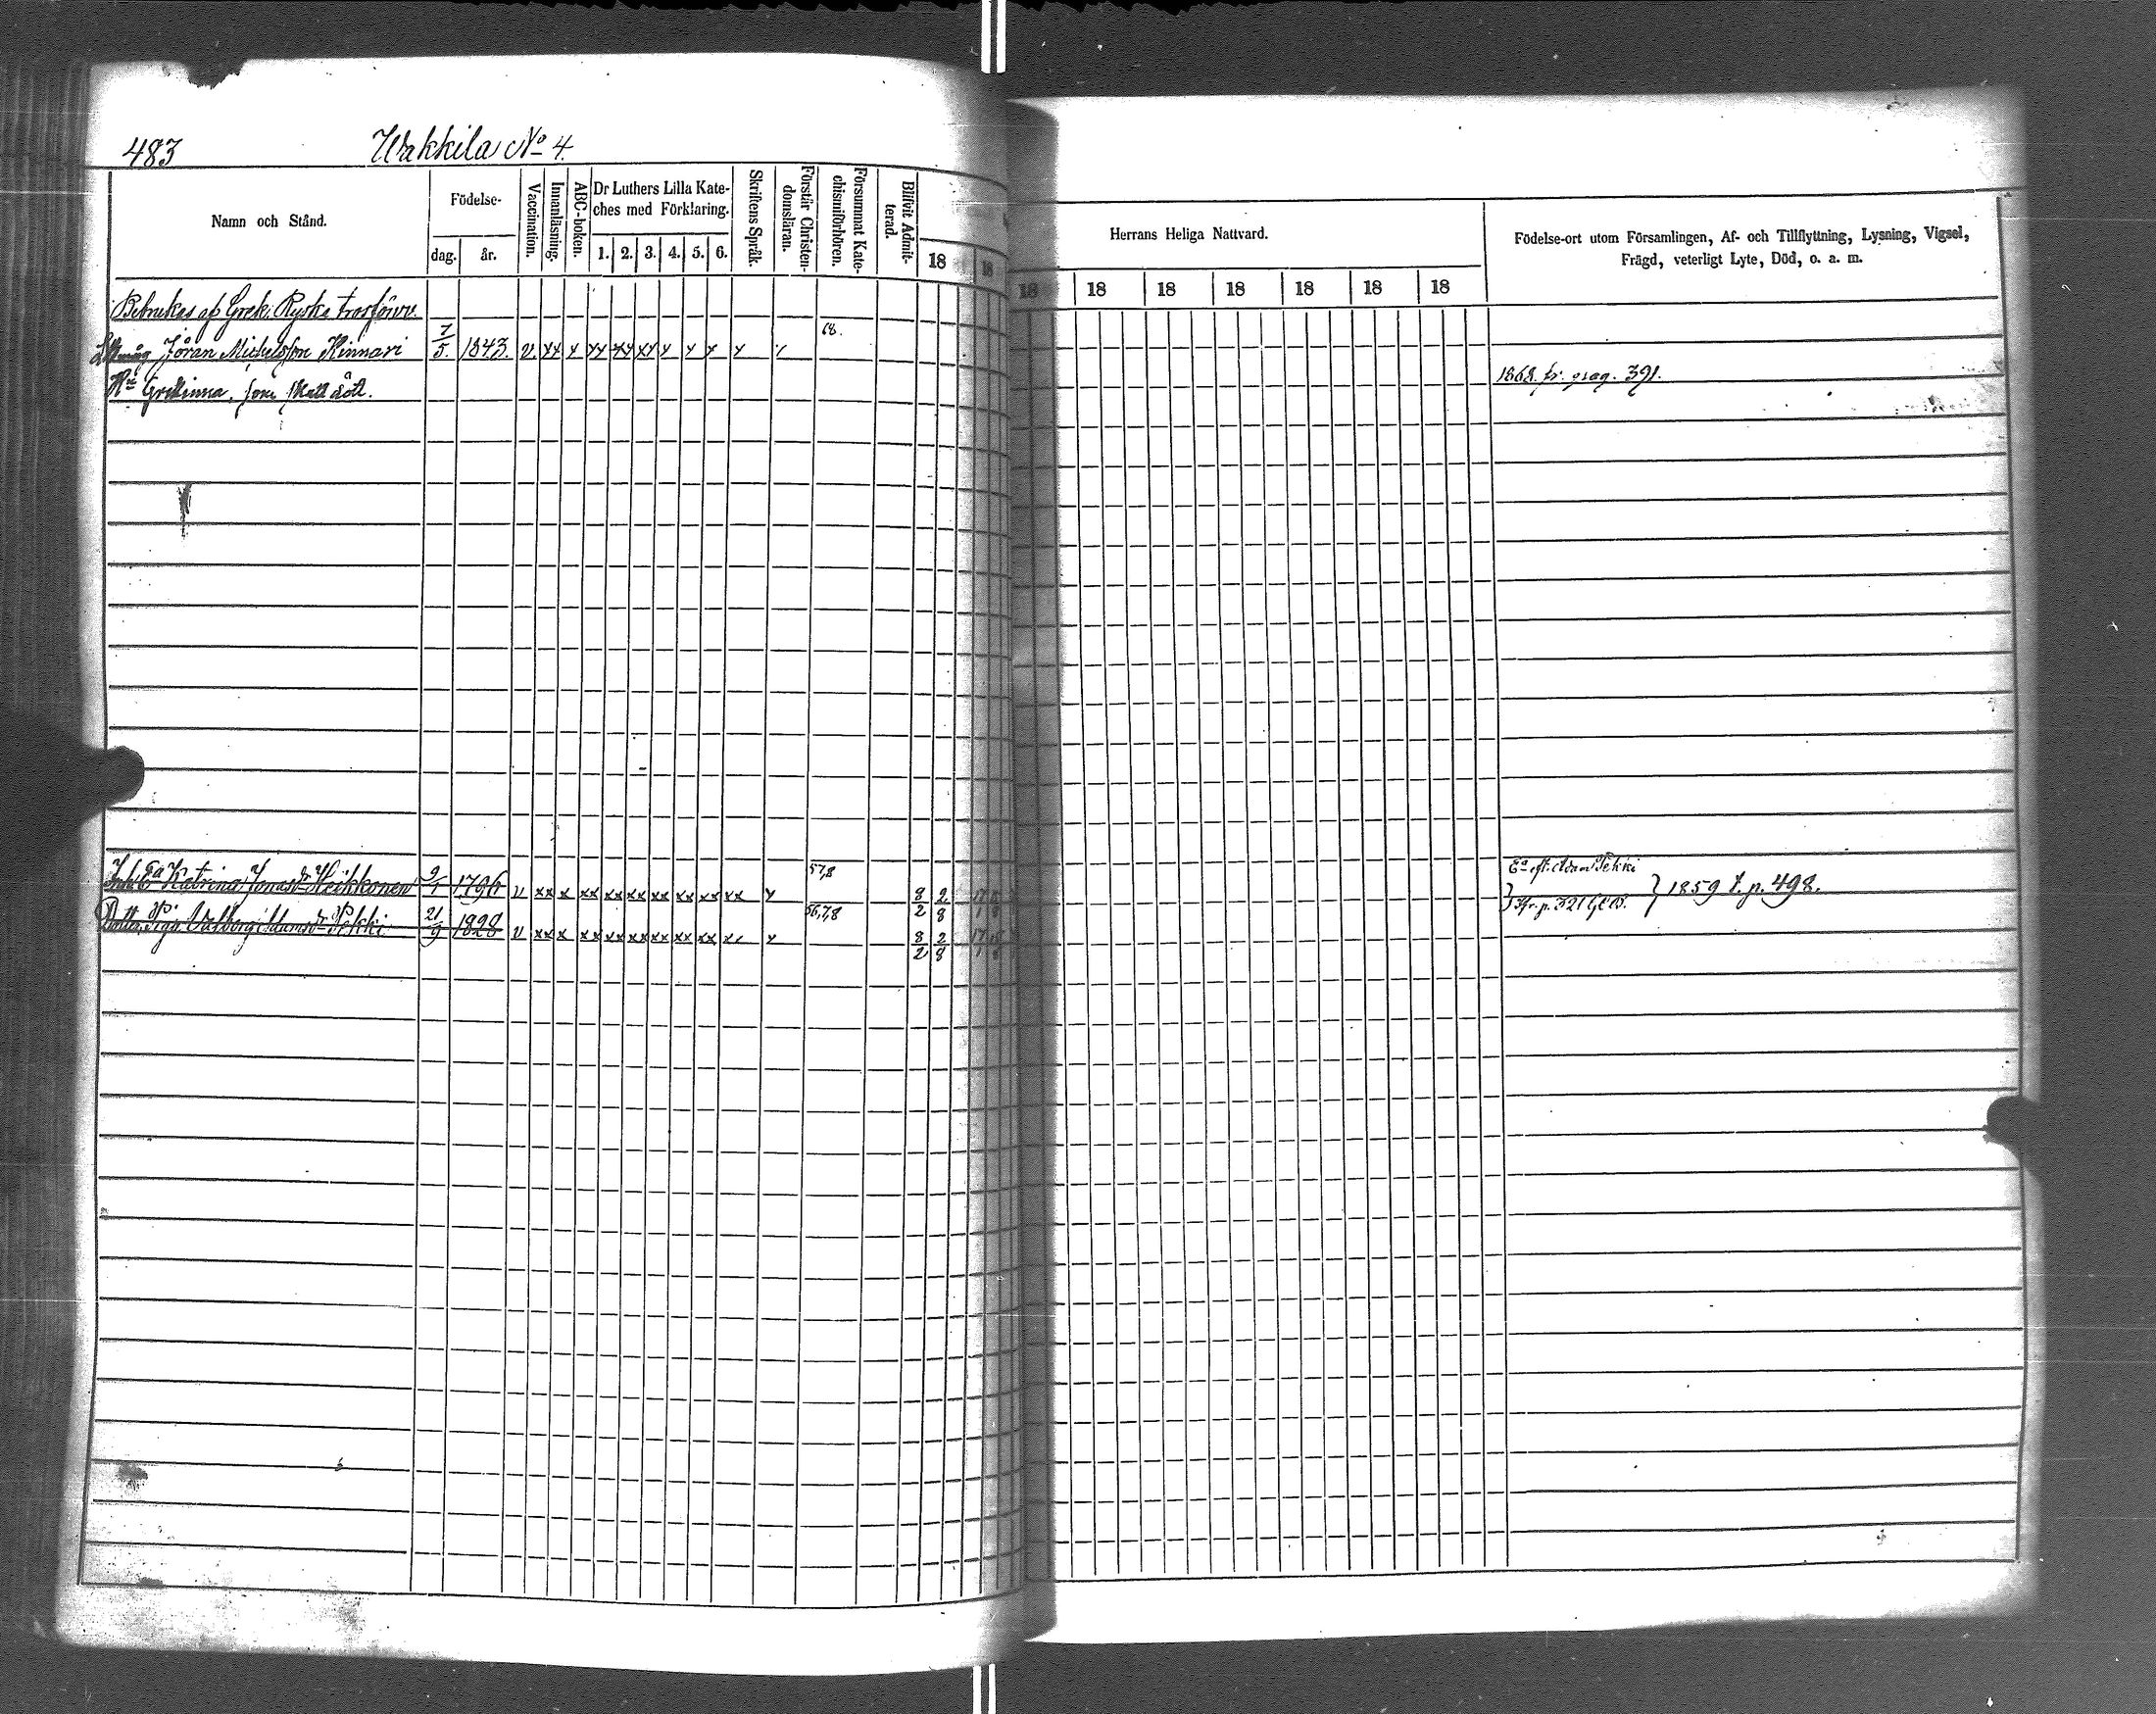 483 Wakkila No 4.
Namn och Stånd.
Födelse-
dag. år.
Vaccination.
Innanläsning.
ABC-boken.
Dr Luthers Lilla Kate-
ches med Förklaring.
1. 2. 3. 4. 5. 6.
Skriftens Språk.
Förstår Christen-
domsläran.
Försummat Kate-
chismiförhören.
Blifvit Admit-
terad.
18 18
Herrans Heliga Nattvard.
18 18 18 18 18 18 18
Födelse-ort utom Församlingen, Af- och Tillflyttning, Lysning, Vigsel,
Frägd, veterligt Lyte, Död, o. a. m.
Brukas af Grek. Ryska
Jöran Michelsson Kinnari 7/5 1843. v xx x xx xx xx x x x x x 68.
Hu Grekinna. 1868. fr. pag. 391.
Enka Katrina Jonasdr Heikkonen 9/1 1796 v xx x xx xx xx xx xx xx xx x 57,8 8/2 2/8
Ea eft. Adam Pekki
fr. p. 321
1859 t. p. 498.
Dotter, Pig. Valborg Adamsdr Pekki 21/9 1828 v xx x xx xx xx xx xx xx x x 56,7,8 8/2 2/8